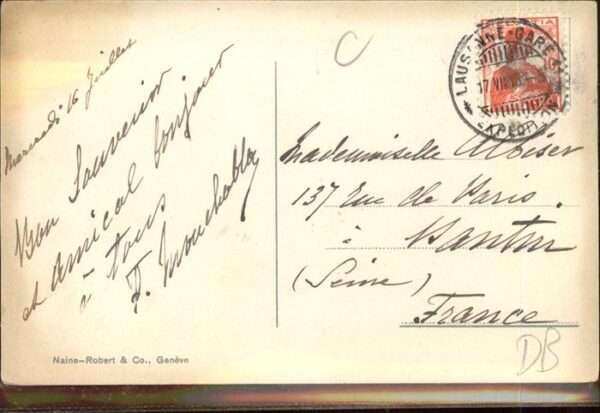 Mercredi 16 Juillet
Bon Souvenir
et amical bonjour
à tous
C
LAUSANNE-GARE
17 VII
EXPEDITION
Mademoiselle
137 Rue de Paris.
à Pantin
(Seine)
France
Naine-Robert & Co., Genève
DB